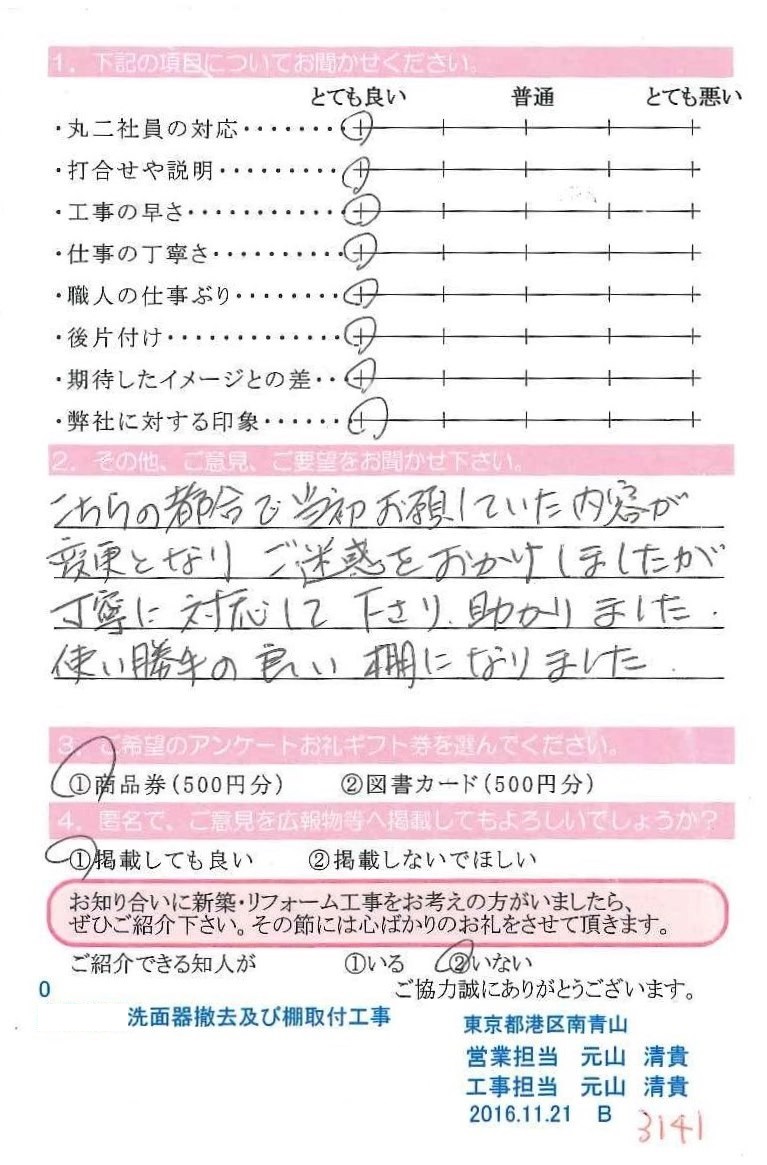 1. 下記の項目についてお聞かせください。
とても良い 普通 とても悪い
・丸二社員の対応・・・・・・・
・打合せや説明・・・・・・・・・
・工事の早さ・・・・・・・・・・・
・仕事の丁寧さ・・・・・・・・・・
・職人の仕事ぶり・・・・・・・・
・後片付け・・・・・・・・・・・・・
・期待したイメージとの差・・
・弊社に対する印象・・・・・・
2. その他、ご意見、ご要望をお聞かせ下さい。
こちらの都合で当初お願していた内容が
変更となり ご迷惑をおかけしましたが
丁寧に対応して下さり、助かりました.
使い勝手の良い棚になりました.
3. ご希望のアンケートお礼ギフト券を選んでください。
①商品券(500円分) ②図書カード(500円分)
4. 匿名で、ご意見を広報物等へ掲載してもよろしいでしょうか?
①掲載しても良い ②掲載しないでほしい
お知り合いに新築・リフォーム工事をお考えの方がいましたら、
ぜひご紹介下さい。その節には心ばかりのお礼をさせて頂きます。
ご紹介できる知人が ①いる ②いない
0 ご協力誠にありがとうございます。
洗面器撤去及び棚取付工事 東京都港区南青山
営業担当 元山 清貴
工事担当 元山 清貴
2016.11.21 B 3141